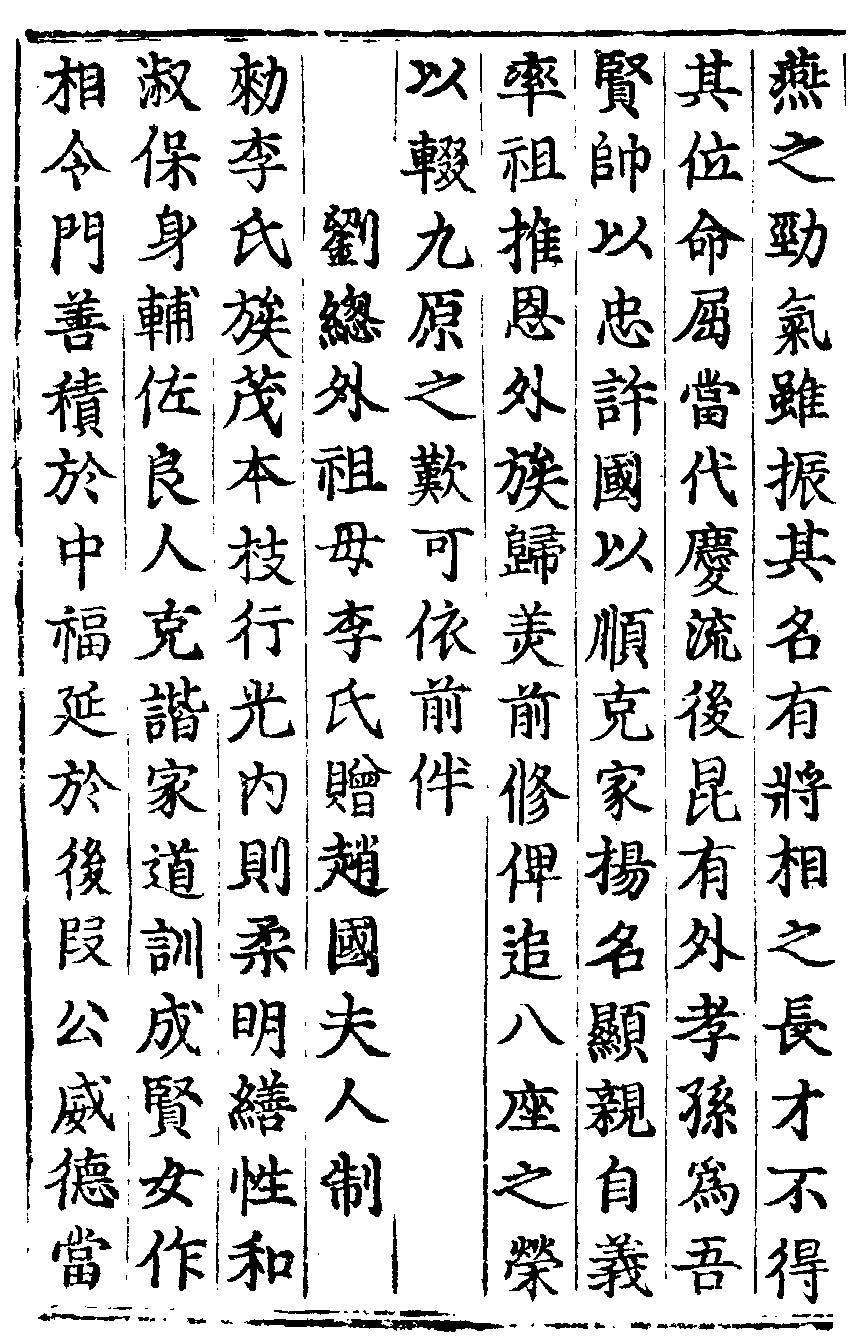 燕之勁氣雖振其名有將相之長才不得
其位命屈當代慶流後昆有外孝孫為吾
賢帥以忠許國以順克家揚名顯親自義
率祖推恩外族歸羙前修俾追八座之榮
以輟九原之歎可依前件
劉緫外祖母李氏贈趙國夫人制
勑李氏族茂本枝行光内則柔明繕性和
淑保身輔佐良人克諧家道訓成賢女作
相令門善積於中福延於後叚公威德當